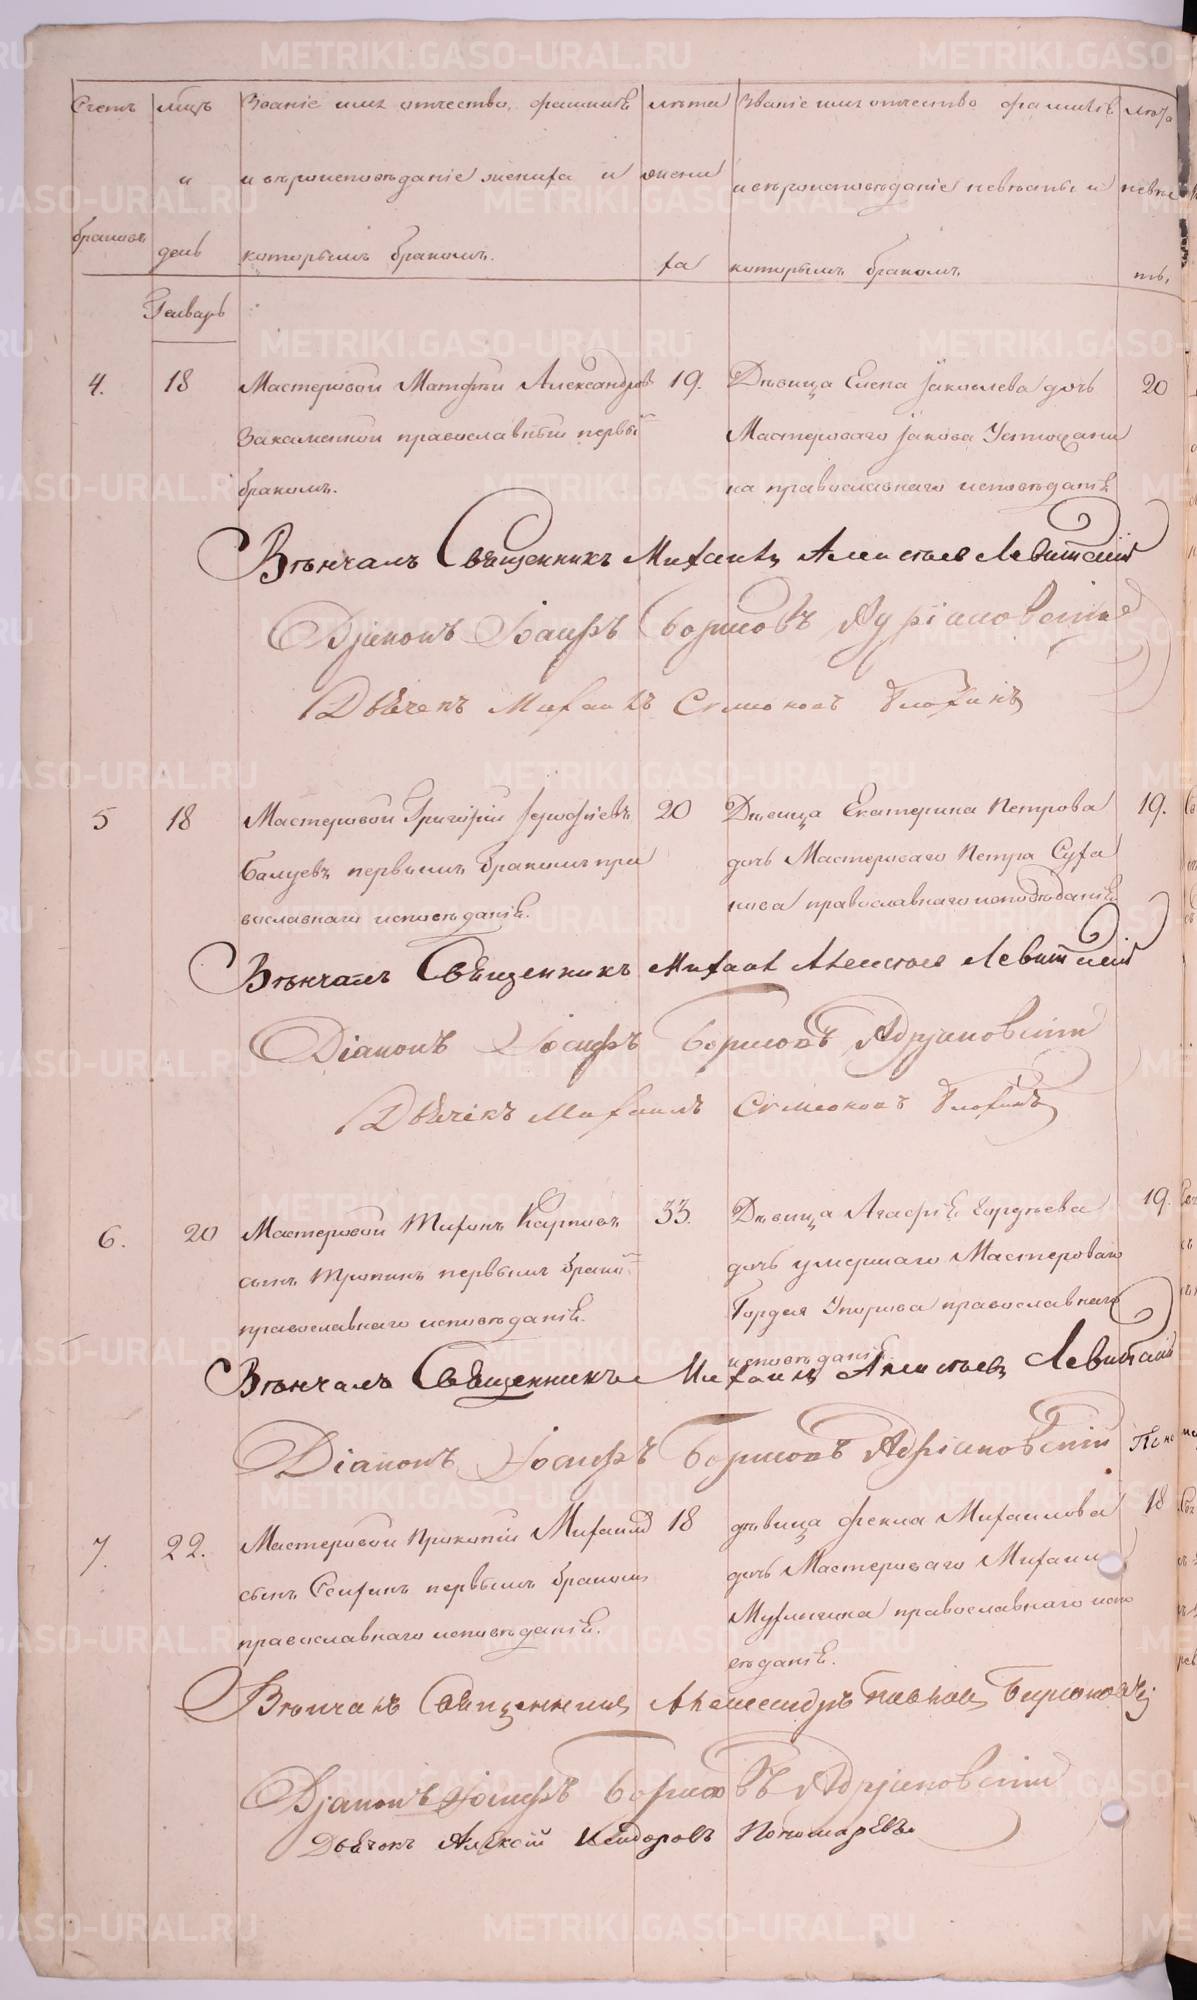 Счетъ | мцъ | Званіе имя отчество фамилія | лѣта | Званіе имя отчество фамилія | лѣта
и | и вѣроисповѣданіе жениха и | жени | и вѣроисповѣданіе невѣсты и | невѣс
браковъ | день | которымъ бракомъ. | ха | которымъ бракомъ | ты,
Генварь
4. | 18 | Мастеровой Матфей Александровъ | 19. | Дѣвица Елена Іаковлева дочь | 20
Закаменной православный первый | Мастероваго Іакова Устюжани
бракомъ. | на православнаго исповѣданія
Вѣнчалъ Священникъ Михаилъ Алексѣевъ Левитскій
Діаконъ Іосифъ Борисовъ Адріановскій
Дьячекъ Михаилъ Симеоновъ
5 | 18 | Мастеровой Григорій Іерофіевъ | 20 | Дѣвица Екатерина Петрова | 19.
Балуевъ первымъ бракомъ пра | дочь Мастероваго Петра Суха
вославнаго исповѣданія. | нова православнаго исповѣданія
Вѣнчалъ Священникъ Михаилъ Алексѣевъ Левитскій
Діаконъ Іосифъ Борисовъ Адріановскій
Дьячекъ Михаилъ Симеоновъ
6. | 20 | Мастеровой Тихонъ Карповъ | 33. | Дѣвица Агафія Гордѣева | 19.
сынъ Тропинъ первымъ бракомъ | дочь умершаго Мастероваго
православнаго исповѣданія. | Гордея православнаго
исповѣданія.
Вѣнчалъ Священникъ Михаилъ Алексѣевъ Левитскій
Діаконъ Іосифъ Борисовъ Адріановскій
7. | 22. | Мастеровой Прокопій Михаилов | 18 | дѣвица Фекла Михаилова | 18
сынъ первымъ бракомъ | дочь Мастероваго Михаила
православнаго исповѣданія. | православнаго испо
вѣданія.
Вѣнчалъ Священникъ Александръ Павловъ Бирюковъ
Діаконъ Іосифъ Борисовъ Адріановскій
Дьячокъ Алексѣй Исидоровъ Пономаревъ
METRIKI.GASO-URAL.RU